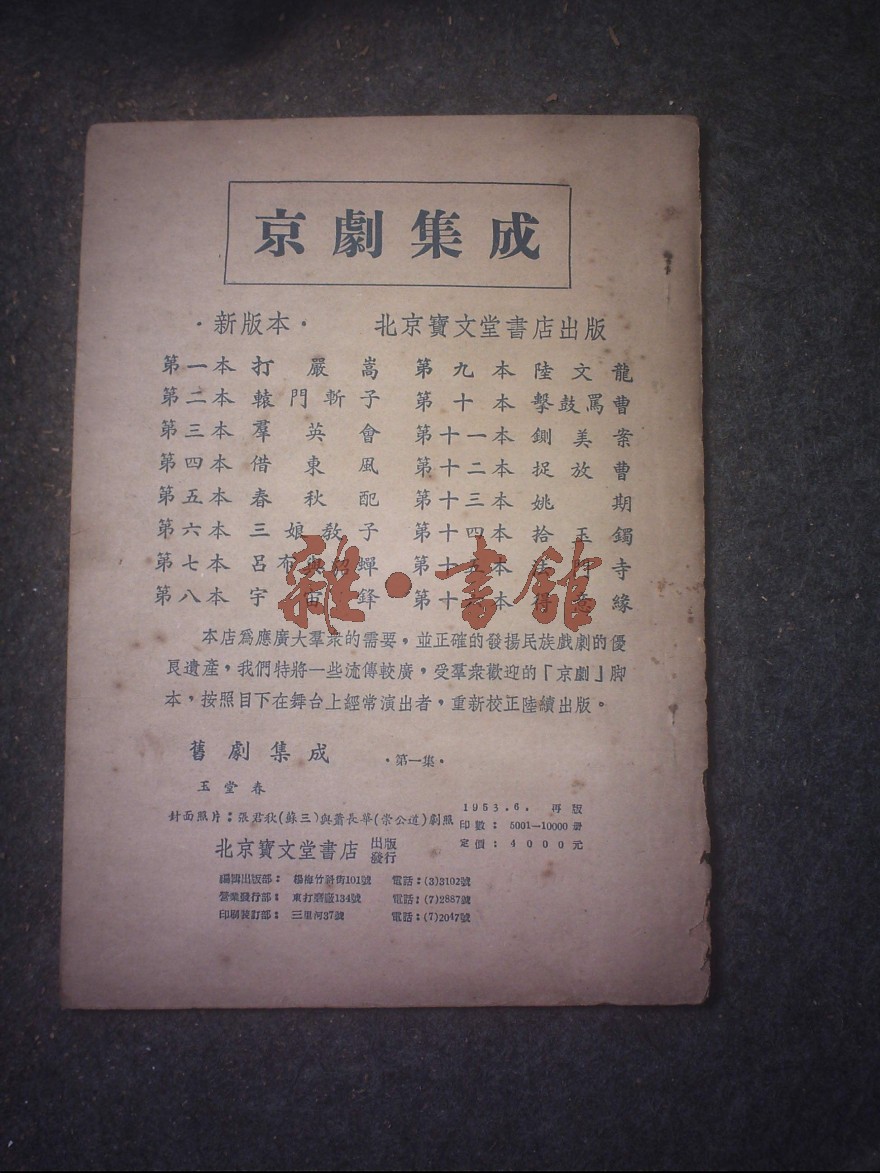 京劇集成
·新版本· 北京寶文堂書店出版
第一本 打嚴嵩 第九本 陸文龍
第二本 轅門斬子 第十本 擊鼓罵曹
第三本 羣英會 第十一本 鍘美案
第四本 借東風 第十二本 捉放曹
第五本 春秋配 第十三本 姚期
第六本 三娘敎子 第十四本 拾玉鐲
第七本 呂布與貂蟬 第十五本 寺
第八本 宇宙鋒 第十六本 得意緣
雜·書館
本店爲應廣大羣衆的需要，並正確的發揚民族戲劇的優
良遺產，我們特將一些流傳較廣，受羣衆歡迎的「京劇」脚
本，按照目下在舞台上經常演出者，重新校正陸續出版。
舊劇集成 ·第一集·
玉堂春
封面照片：張君秋(蘇三)與蕭長華(崇公道)劇照
1953.6. 再版
印數：5001—10000册
定價：4000元
北京寶文堂書店 出版發行
編輯出版部：楊梅竹斜街101號 電話：(3)3102號
營業發行部：東打磨廠134號 電話：(7)2887號
印刷裝訂部：三里河37號 電話：(7)2047號